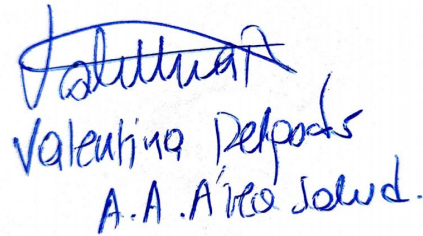 Valentina
Valentina Delgado
A.A. Área Salud.